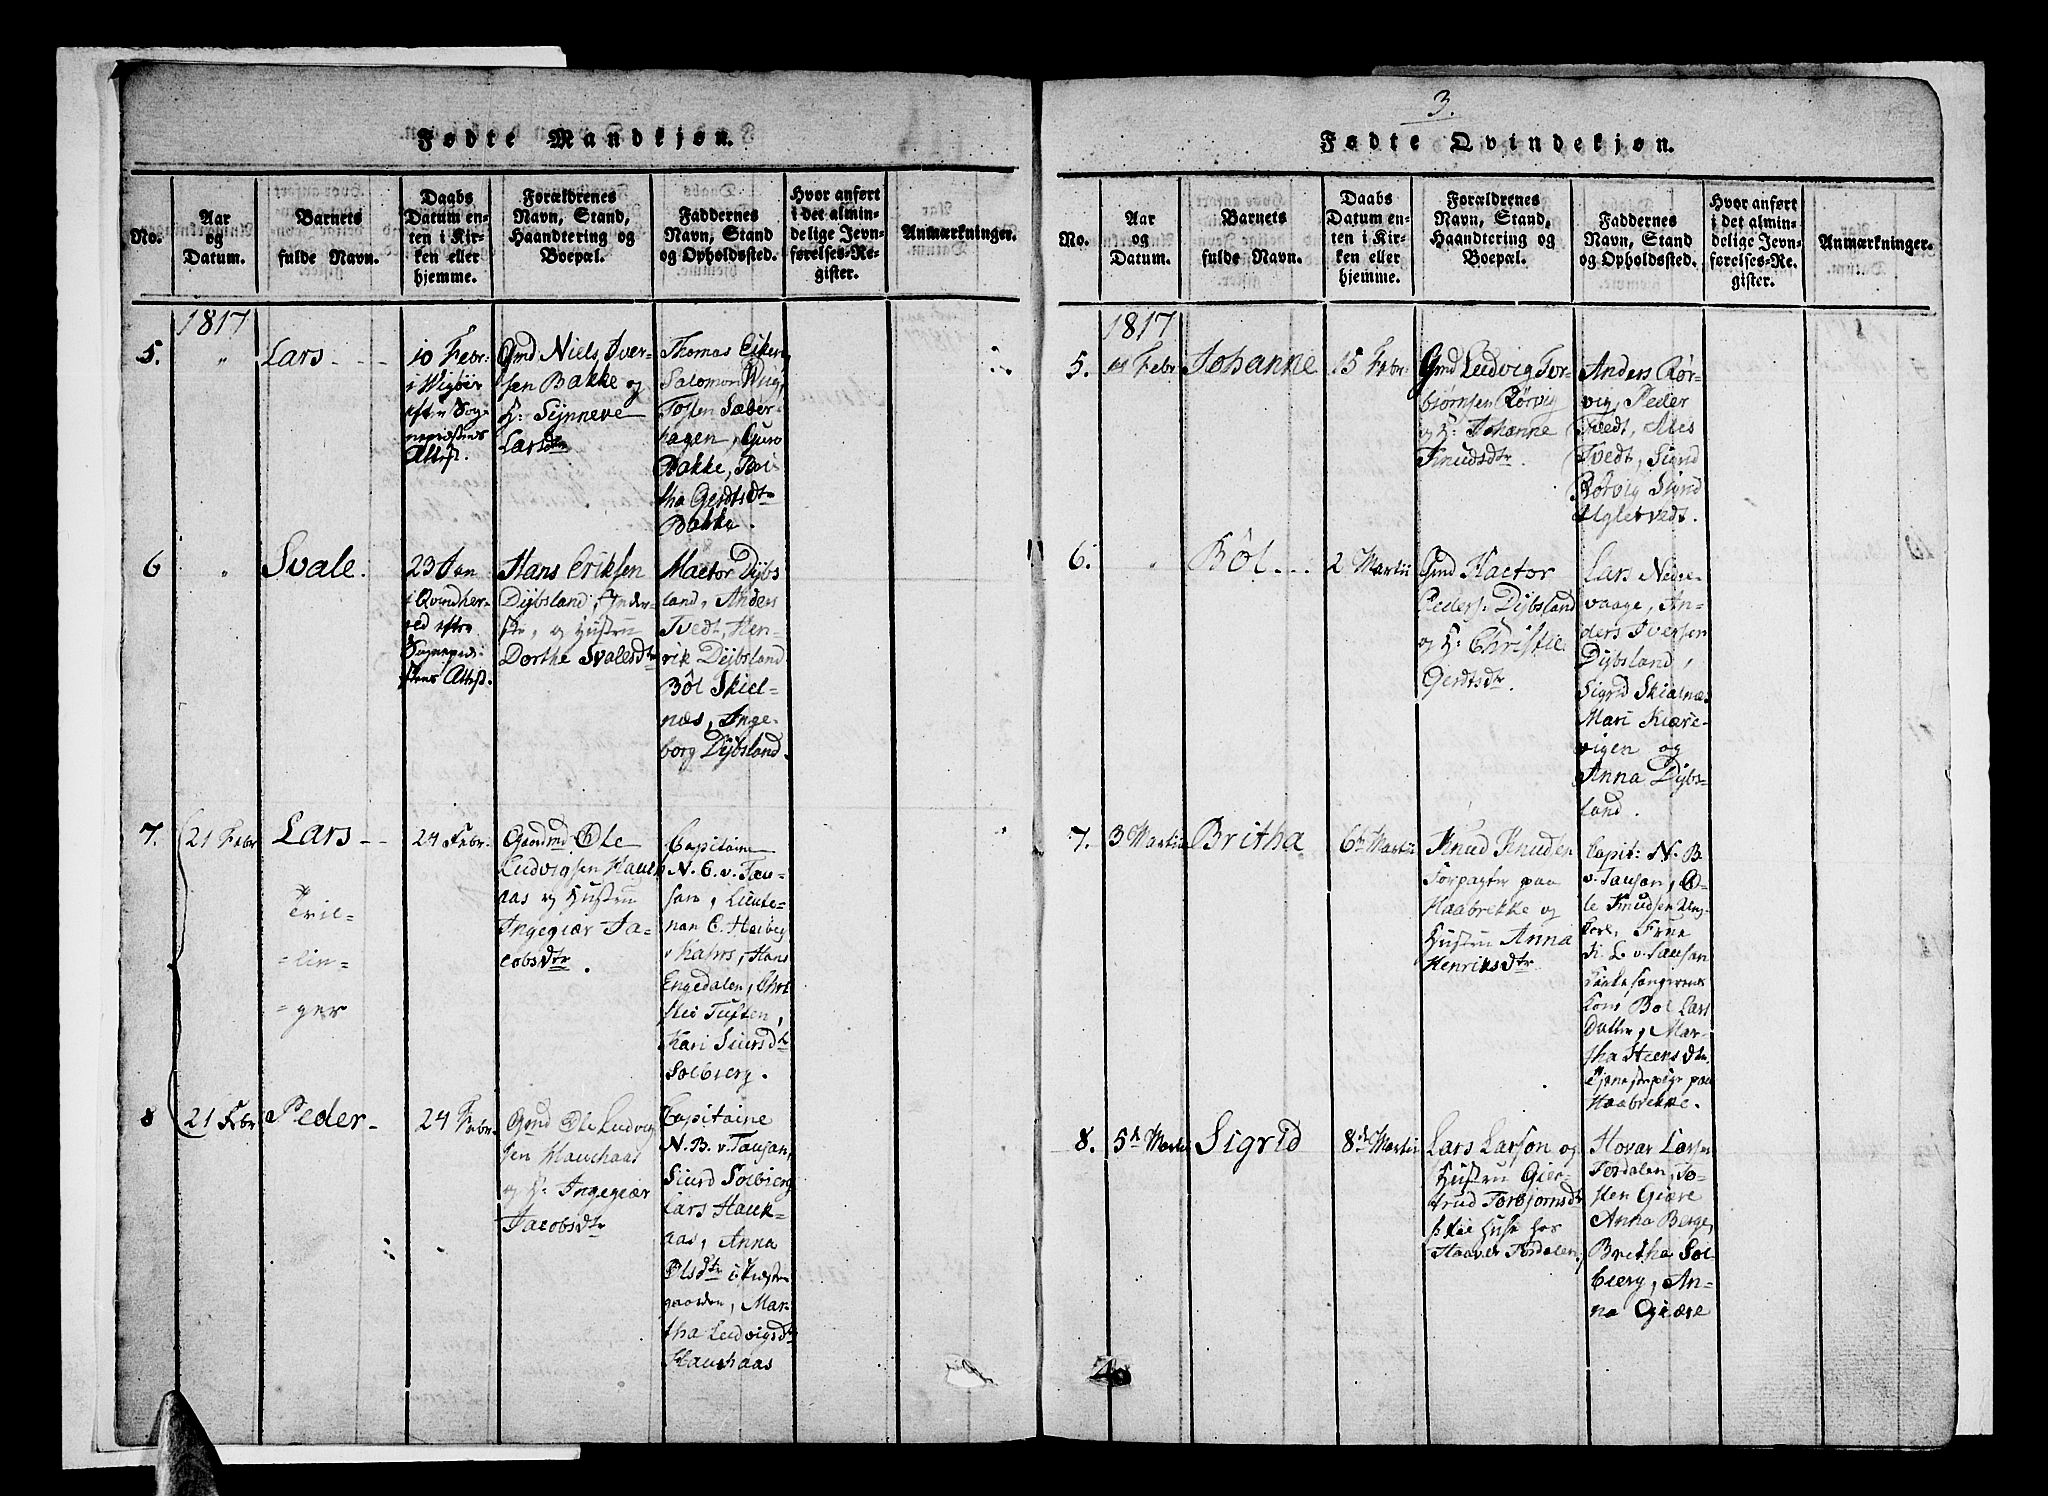 Fødte Mandkjøn.
No.
Aar
og
Datum.
Barnets
fulde Navn.
Daabs
Datum en-
ten i Kir-
ken eller
hjemme.
Forældrenes
Navn, Stand,
Haandtering og
Boepæl.
Faddernes
Navn, Stand
og Opholdssted.
Hvor anført
i det almin-
delige Jevn-
førelses-Re-
gister.
Anmærkninger.
1817
5.
"
Lars
10 Febr:
efter Sog-
nepræstens
Attest.
Gmd Niels Iver-
sen Bakke og
H: Synneve
Larsdtr
Thomas Eiken,
Salomon Wiig,
Tosten Sæber-
hagen, Guro
Bakke, Bri-
tha Gerdtsdtr
Bakke.
6
"
Svale.
23 Jan
i Qvindher-
red efter
Sognepræ-
stens Attest.
Hans Eriksen
Dybsland, Inder-
ste, og Hustru
Dorthe Svalesdtr
Hactor Dybs
land, Anders
Tvedt, Hen-
rik Dybsland
Böl Skiel-
næs, Inge-
borg Dybsland.
7.
21 Febr
Lars
Tvil-
-lin-
-ger
24 Febr.
Gaardmd Ole
Ludvigsen Hauk
aas og Hustru
Ingegiær Ja-
cobsdtr.
Capitaine
N. B. v. Tau-
san, Lieute-
nan C. Heiberg
Hans
Engedalen, Chri
stie Tuften,
Kari Siursdtr
Solbierg.
8
21 Febr
Peder
24 Febr.
Gmd Ole Ludvig
sen Haukaas
og H: Ingegiær
Jacobsdtr
Capitaine
N. B. v. Tausan,
Siurd Solbierg
Lars Hauk-
aas, Anna
Olsdtr i Præste
gaarden, Mar-
tha Ludvigsdtr
Haukaas
3.
Fødte Qvindekjøn.
No.
Aar
og
Datum.
Barnets
fulde Navn.
Daabs
Datum en-
ten i Kir-
ken eller
hjemme.
Forældrenes
Navn, Stand,
Haandtering og
Boepæl.
Faddernes
Navn, Stand
og Opholdssted.
Hvor anført
i det almin-
delige Jevn-
førelses-Re-
gister.
Anmærkninger.
1817
5.
Febr
Johanne
15 Febr.
Gmd Ludvig Tor-
biörnsen Rörvig
og H: Johanne
Knudsdtr.
Anders Rör-
vig, Peder
Tvedt, Ales
Tvedt, Sigrid
Rörvig
Ugletvedt.
6.
"
Böl
2 Martii
Gmd Hactor
Peders. Dybsland
og H: Christie
Gerdtsdtr.
Lars Nede-
vaage, An-
ders Iversen
Dybsland,
Sigrid Skialnæs
Mari Kiære-
vigen og
Anna Dybs-
land.
7.
3 Martii
Britha
6te Martii
Knud Knudsen
Forpagter paa
Haabrekke og
Hustru Anna
Henriksdtr
Capit: N. B
v. Tausan, O-
le Knudsen Ung-
karl, Frue
L. v. Tausan
Kone Böl Lars
datter, Mar-
tha Steensdtr
Tjenestepige paa
Haabrekke.
8.
5te Martii
Sigrid
8de Martii
Lars Larson og
Hustru Gier-
trud Torbjørnsdtr
Huse hos
Haaver Tordalen.
Hovar Larsen
Tordalen, To-
sten Giære
Anna Berge,
Britha Sol-
bierg, An-
na Giære